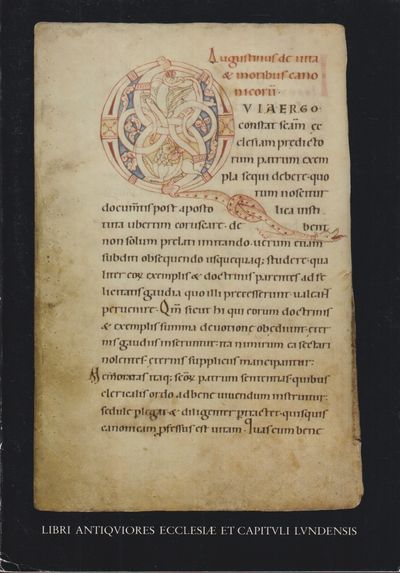 Augustinus de uita
& moribus cano
nicorū.
QVIA ERGO
constat scām ec
clesiam predicto
rum patrum exem
pla sequi debere quo
rum noscitur
documtis post aposto lica insti
tuta ubertim coruscare. de bent
non solum prelati imitando. uerum etiam
subditi obsequendo usquequaq; studere qua
liter eoꝝ exemplis & doctrinis parentes ad fe
licitatis gaudia quo illi precesserunt ualeant
peruenire. Qm̄ sicut hi qui eorum doctrinis
& exemplis summa deuotione obediunt. eter
nis gaudiis inseruntur. ita nimirum ea sectari
nolentes. eternis suppliciis mancipantur:
Memoratas itaq; scōꝝ patrum sententias quibus
clericalis ordo ad bene uiuendum instruitur.
sedule plegat & diligenter ptractet. quisquis
canonicam pfessus est uitam. Quas cum bene
LIBRI ANTIQVIORES ECCLESIÆ ET CAPITVLI LVNDENSIS